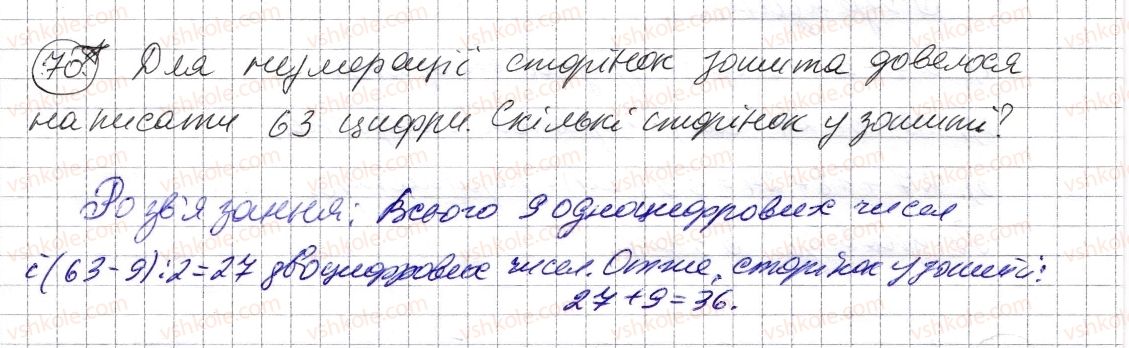 70* Для нумерації сторінок зошита довелося
написати 63 цифри. Скільки сторінок у зошиті?
Розв'язання: Всього 9 одноцифрових чисел
і (63-9):2=27 двоцифрових чисел. Отже, сторінок у зошиті:
27+9=36.